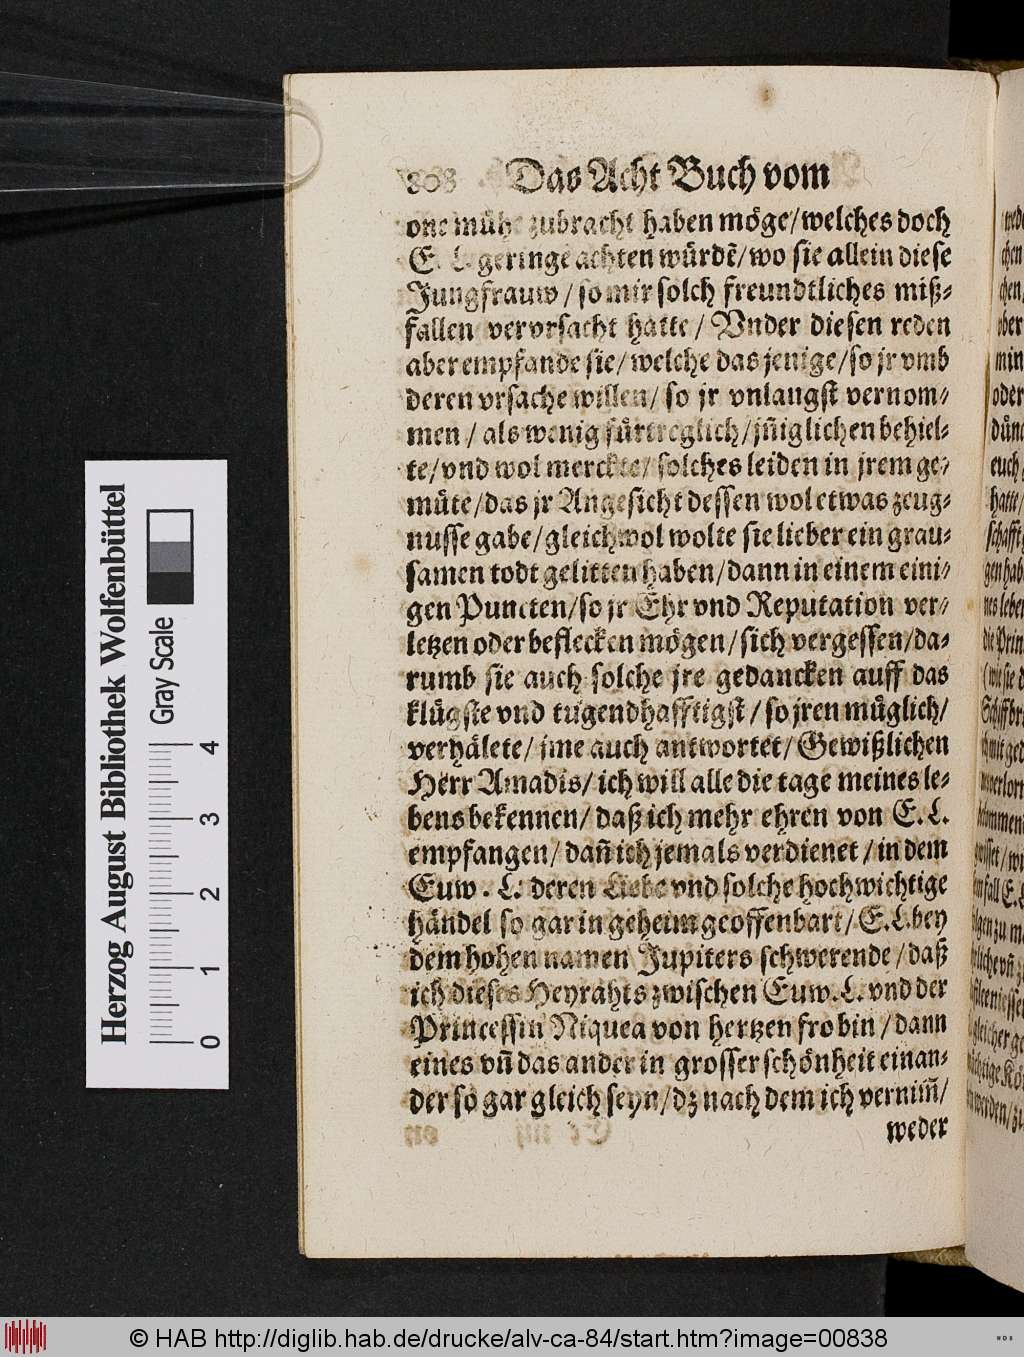 808 Das Acht Buch vom
one mühe zubracht haben möge/welches doch
E. L. geringe achten würdẽ/wo sie allein diese
Jungfrauw/so mir solch freundtliches miß-
fallen vervrsacht hatte/Vnder diesen reden
aber empfande sie/welche das jenige/so jr vmb
deren vrsache willen/so jr vnlangst vernom-
men/als wenig fürtreglich/jñiglichen behiel-
te/vnd wol merckte/solches leiden in jrem ge-
müte/das jr Angesicht dessen wol etwas zeug-
nusse gabe/gleichwol wolte sie lieber ein grau-
samen todt gelitten haben/dann in einem eini-
gen Puncten/so jr Ehr vnd Reputation ver-
letzen oder beflecken mögen/sich vergessen/da-
rumb sie auch solche jre gedancken auff das
klügste vnd tugendhafftigst/so jren müglich/
verhälete/jme auch antwortet/Gewißlichen
Herr Amadis/ich will alle die tage meines le-
bens bekennen/daß ich mehr ehren von E. L.
empfangen/dañ ich jemals verdienet/in dem
Euw. L. deren Liebe vnd solche hochwichtige
händel so gar in geheim geoffenbart/E. L. bey
dem hohen namen Jupiters schwerende/daß
ich dieses Heyrahts zwischen Euw. L. vnd der
Princessin Niquea von hertzen fro bin/dann
eines vñ das ander in grosser schönheit einan-
der so gar gleich seyn/dz nach dem ich vernim̃/
weder
Herzog August Bibliothek Wolfenbüttel
Gray Scale
0 1 2 3 4
© HAB http://diglib.hab.de/drucke/alv-ca-84/start.htm?image=00838